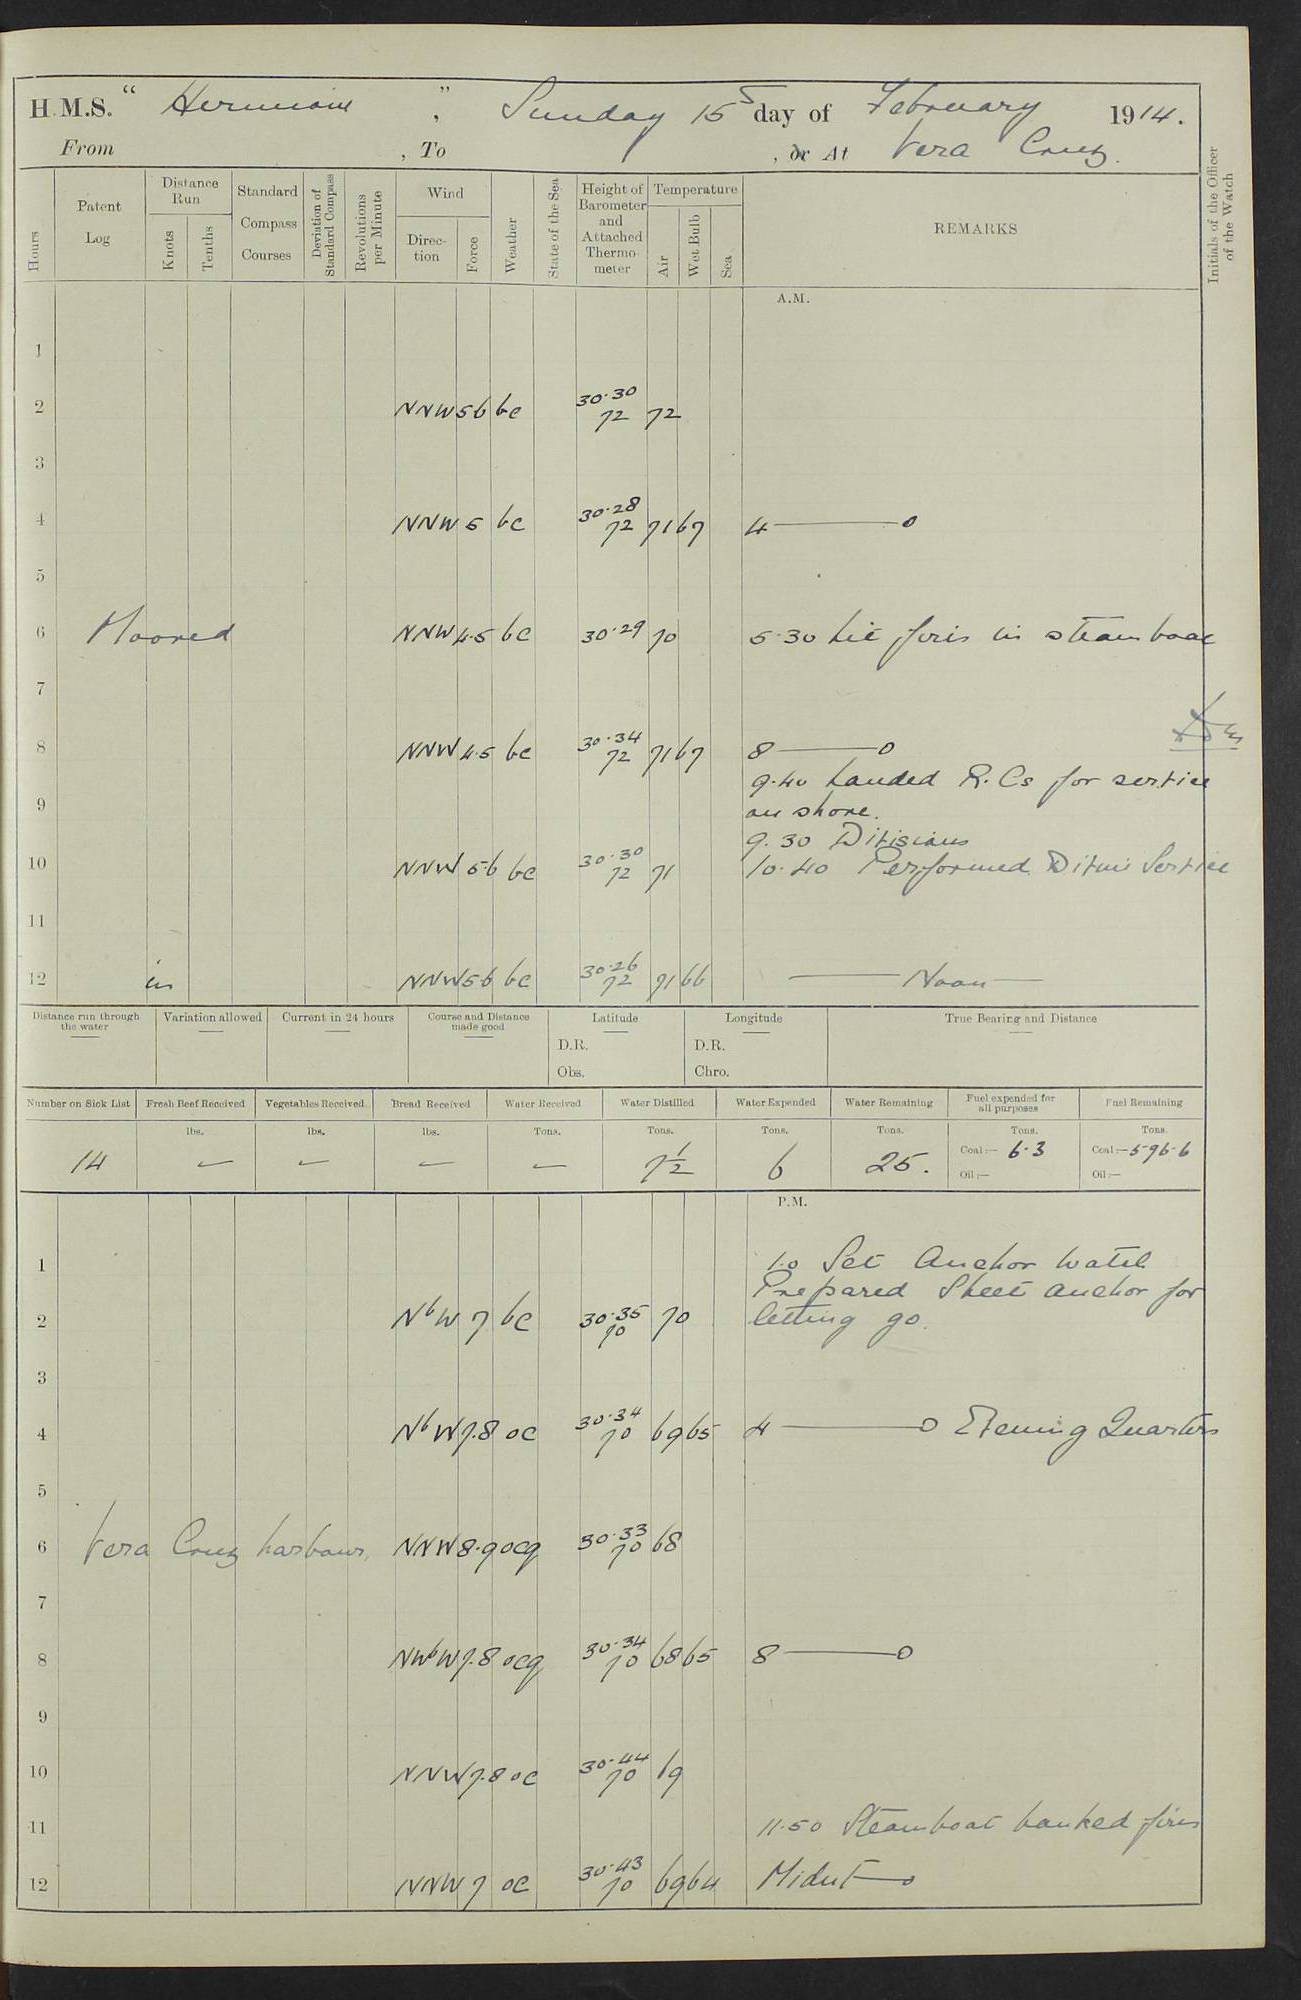 H.M.S. "Hermione", Sunday 15 day of February 1914.
From , To , or At Vera Cruz.
Hours
Patent Log
Distance Run
Knots
Tenths
Standard Compass Courses
Deviation of Standard Compass
Revolutions per Minute
Wind
Direction
Force
Weather
State of the Sea
Height of Barometer and Attached Thermometer
Temperature
Air
Wet Bulb
Sea
REMARKS
Initials of the Officer of the Watch
A.M.
1
2 NNW 5.6 bc 30.30 72 72
3
4 NNW 5 bc 30.28 72 71 67 4 ——— 0
5
6 Moored NNW 4.5 bc 30.29 70 5.30 Lit fires in steam boat
7
8 NNW 4.5 bc 30.34 72 71 67 8 ——— 0
9.40 Landed R.Cs for service
9 on shore.
9.30 Divisions
10 NNW 5.6 bc 30.30 72 71 10.40 Performed Divine Service
11
12 in NNW 5.6 bc 30.26 72 71 66 ——— Noon ———
Distance run through the water
Variation allowed
Current in 24 hours
Course and Distance made good
Latitude
D.R.
Obs.
Longitude
D.R.
Chro.
True Bearing and Distance
Number on Sick List
Fresh Beef Received
Vegetables Received
Bread Received
Water Received
Water Distilled
Water Expended
Water Remaining
Fuel expended for all purposes
Fuel Remaining
lbs. lbs. lbs. Tons. Tons. Tons. Tons. Tons. Tons.
14 — — — — 7 1/2 6 25. Coal:— 6.3 Coal:— 596.6
Oil:— Oil:—
P.M.
1 1.0 Set Anchor Watch
Prepared Sheet anchor for
2 NbW 7 bc 30.35 70 70 letting go.
3
4 NbW 7.8 oc 30.34 70 69 65 4 ——— 0 Evening Quarters
5
6 Vera Cruz harbour. NNW 8.9 ocq 30.33 70 68
7
8 NWbW 7.8 ocq 30.34 70 68 65 8 ——— 0
9
10 NNW 7.8 oc 30.44 70 69
11 11.50 Steamboat banked fires
12 NNW 7 oc 30.43 70 69 64 Midnt ——— 0